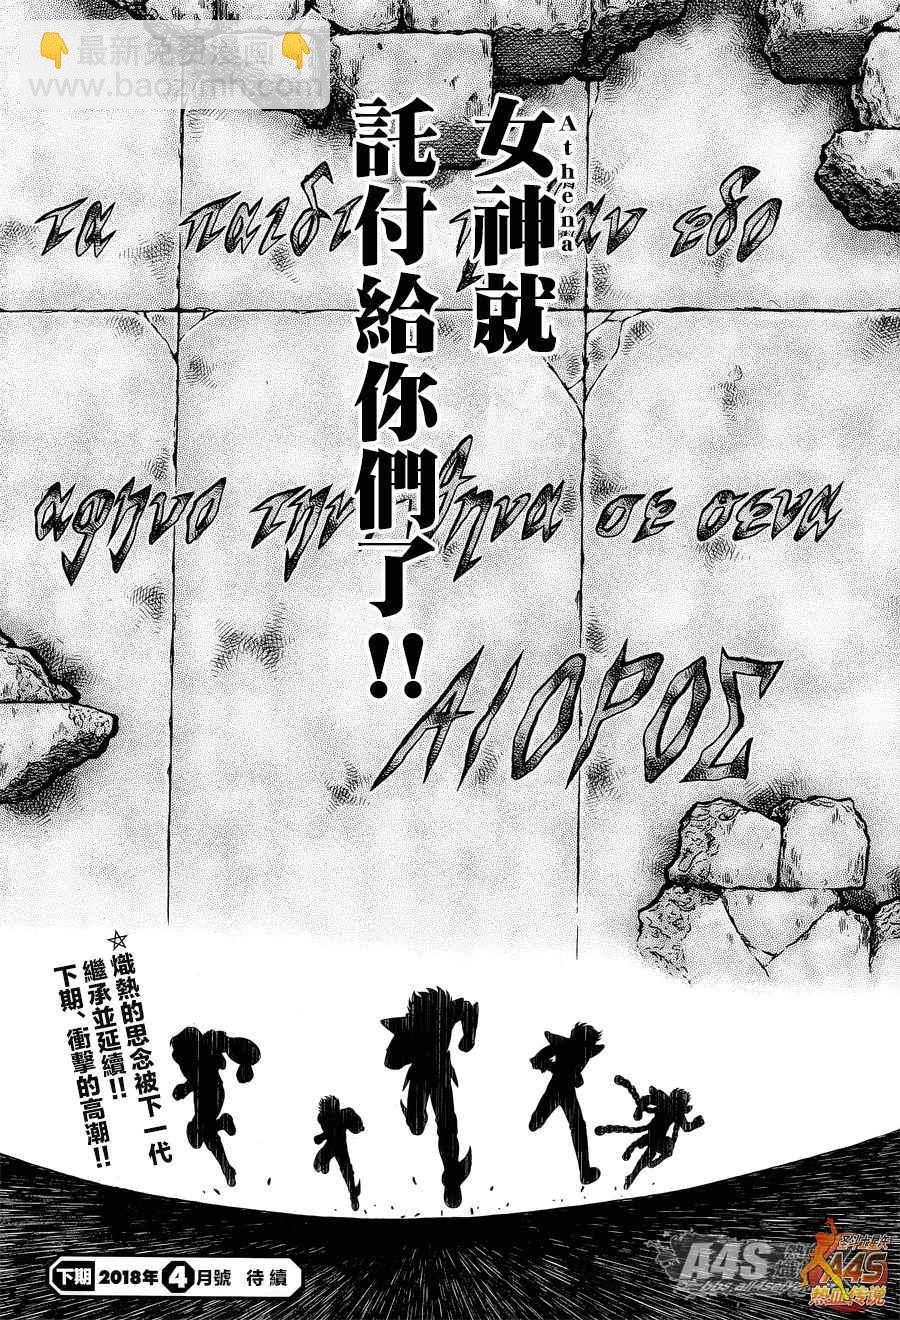 最新免费漫画
www.baozimh.com
女神就
Athena
託付給你們了!!
τα παιδ
αν εδο
αφηνο την
ηνα σε σενα
ΑΙΟΡΟΣ
☆熾熱的思念被下一代
繼承並延續!!
下期、衝擊的高潮!!
下期 2018年4月號 待續
A4S
A4S
熱血传说